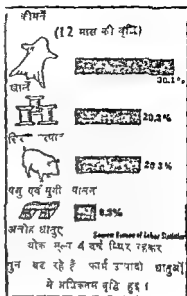 कीमतें
(12 मास की वृद्धि)
30.1%
खानें
20.2%
20.3%
पशु एवं मुर्गी पालन
8.3%
अलोह धातुए
Source Bureau of Labor Statistics
थोक मूल्य 4 वर्ष स्थिर रहकर
पुन बढ़ रहे हैं फार्म उत्पादो धातुओं
मे अधिकतम वृद्धि हुइ।